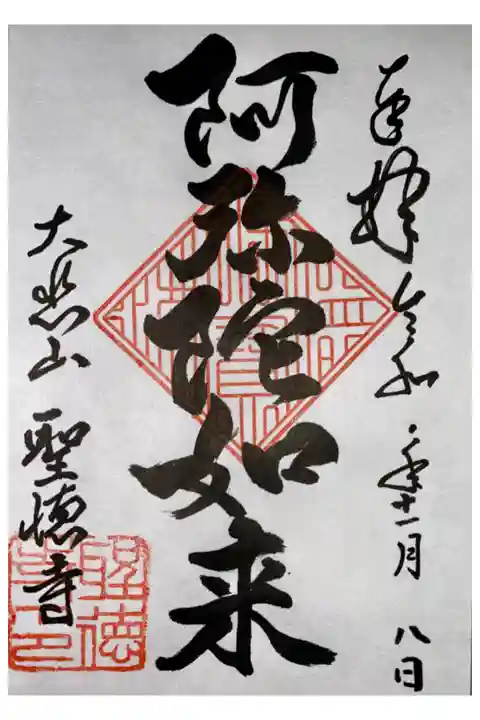 奉拝 令和二年十一月八日
阿弥陀如来
大悲山 聖徳寺
聖徳寺印